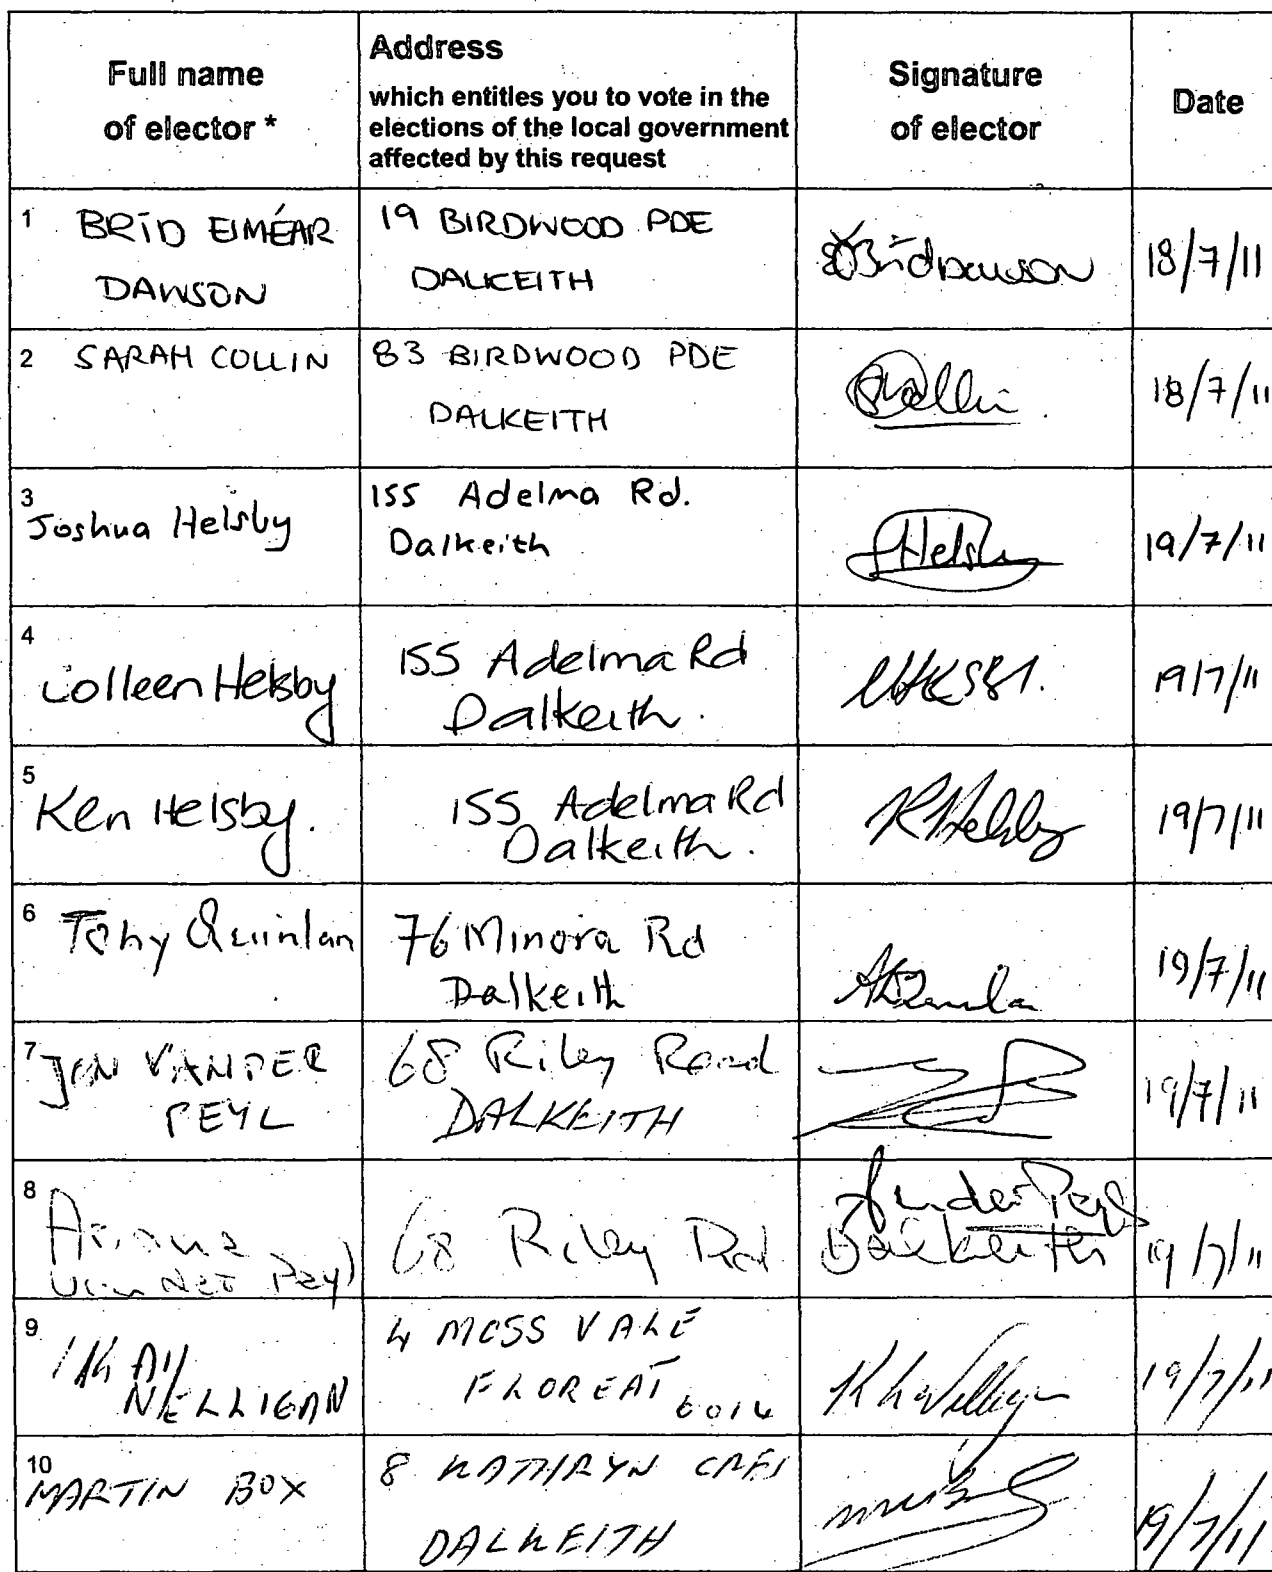 Full name
of elector *
Address
which entitles you to vote in the
elections of the local government
affected by this request
Signature
of elector
Date
1 BRÍD EIMÉAR
DAWSON
19 BIRDWOOD PDE
DALKEITH
BrídDawson
18/7/11
2 SARAH COLLIN
83 BIRDWOOD PDE
DALKEITH
18/7/11
3
Joshua Helsby
155 Adelma Rd.
Dalkeith
Helsby
19/7/11
4
Colleen Helsby
155 Adelma Rd
Dalkeith.
19/7/11
5
Ken Helsby.
155 Adelma Rd
Dalkeith.
KHelsby
19/7/11
6 Tony Quinlan
76 Minora Rd
Dalkeith
19/7/11
7 JON VANDER
PEYL
68 Riley Road
DALKEITH
19/7/11
8
Ariane
van der Peyl
68 Riley Rd
Dalkeith
19/7/11
9
NELLIGAN
4 MOSS VALE
FLOREAT 6014
19/7/11
10
MARTIN BOX
8 KATHRYN CRES
DALKEITH
19/7/11